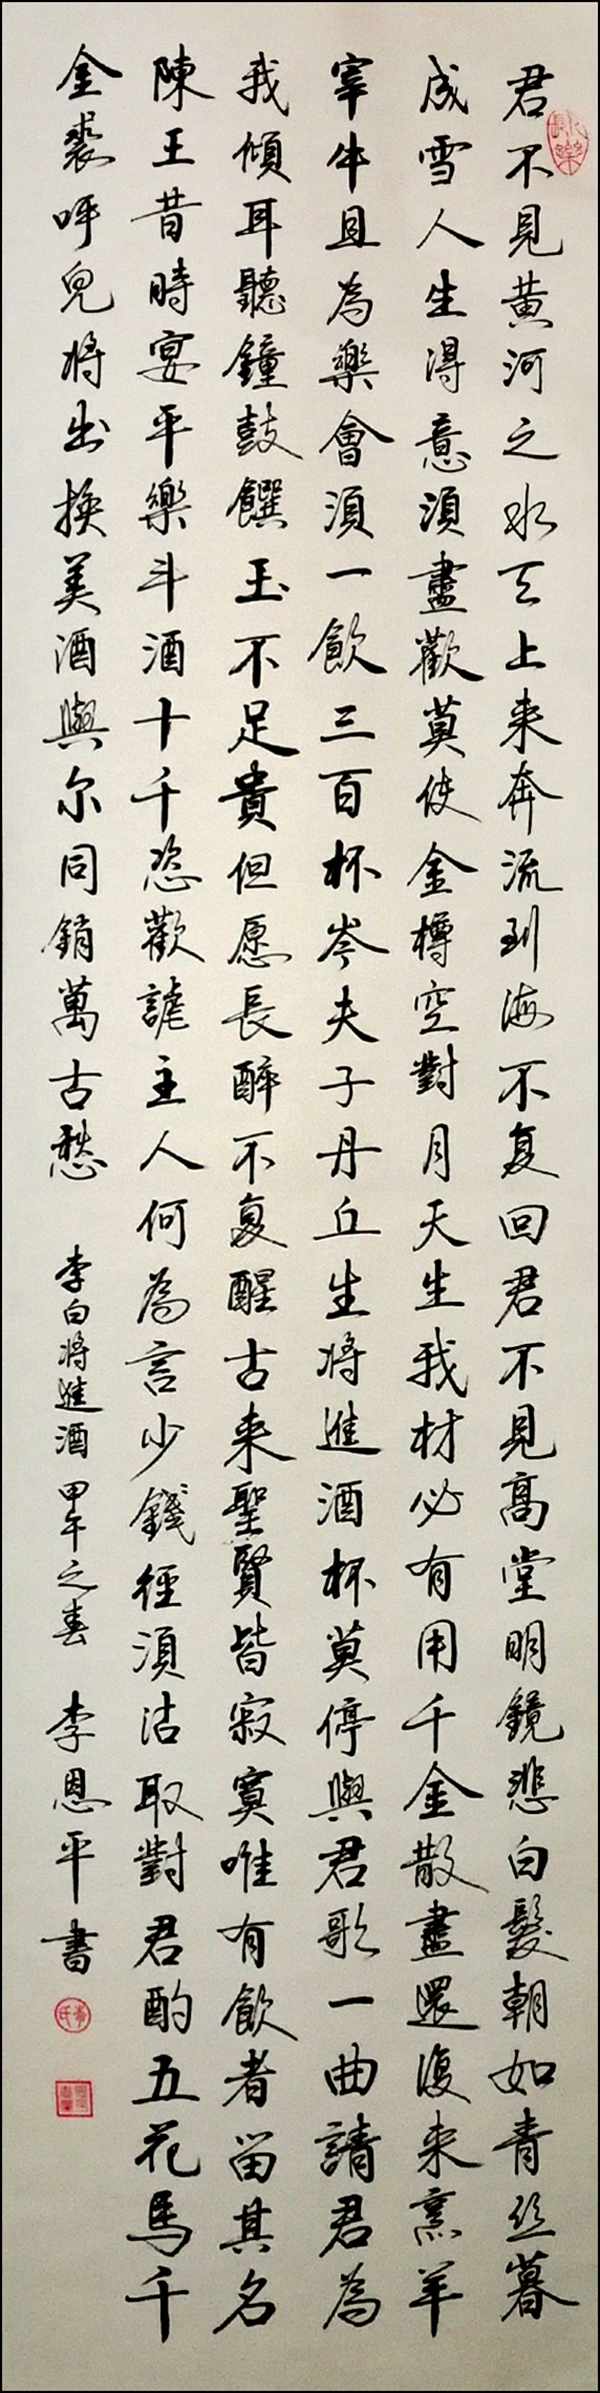 君不見黄河之水天上来奔流到海不复回君不見高堂明鏡悲白髮朝如青丝暮
成雪人生得意須盡歡莫使金樽空對月天生我材必有用千金散盡還復来烹羊
宰牛且為樂會須一飲三百杯岑夫子丹丘生将進酒杯莫停與君歌一曲請君為
我傾耳聽鐘鼓饌玉不足貴但愿長醉不复醒古来聖賢皆寂寞唯有飲者留其名
陳王昔時宴平樂斗酒十千恣歡謔主人何為言少錢徑須沽取對君酌五花馬千
金裘呼兒将出換美酒與尔同銷萬古愁 李白将進酒 甲午之春 李恩平書
李氏